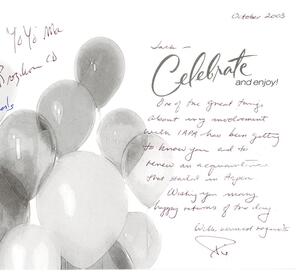 October 2003
Yo Yo Ma
CD
Jack -
Celebrate
and enjoy!
One of the great things
about my involvement
with IAPA has been getting
to know you and to
renew an acquaintance
that started in Aspen
Wishing you many
happy returns of the day
With warmest regards